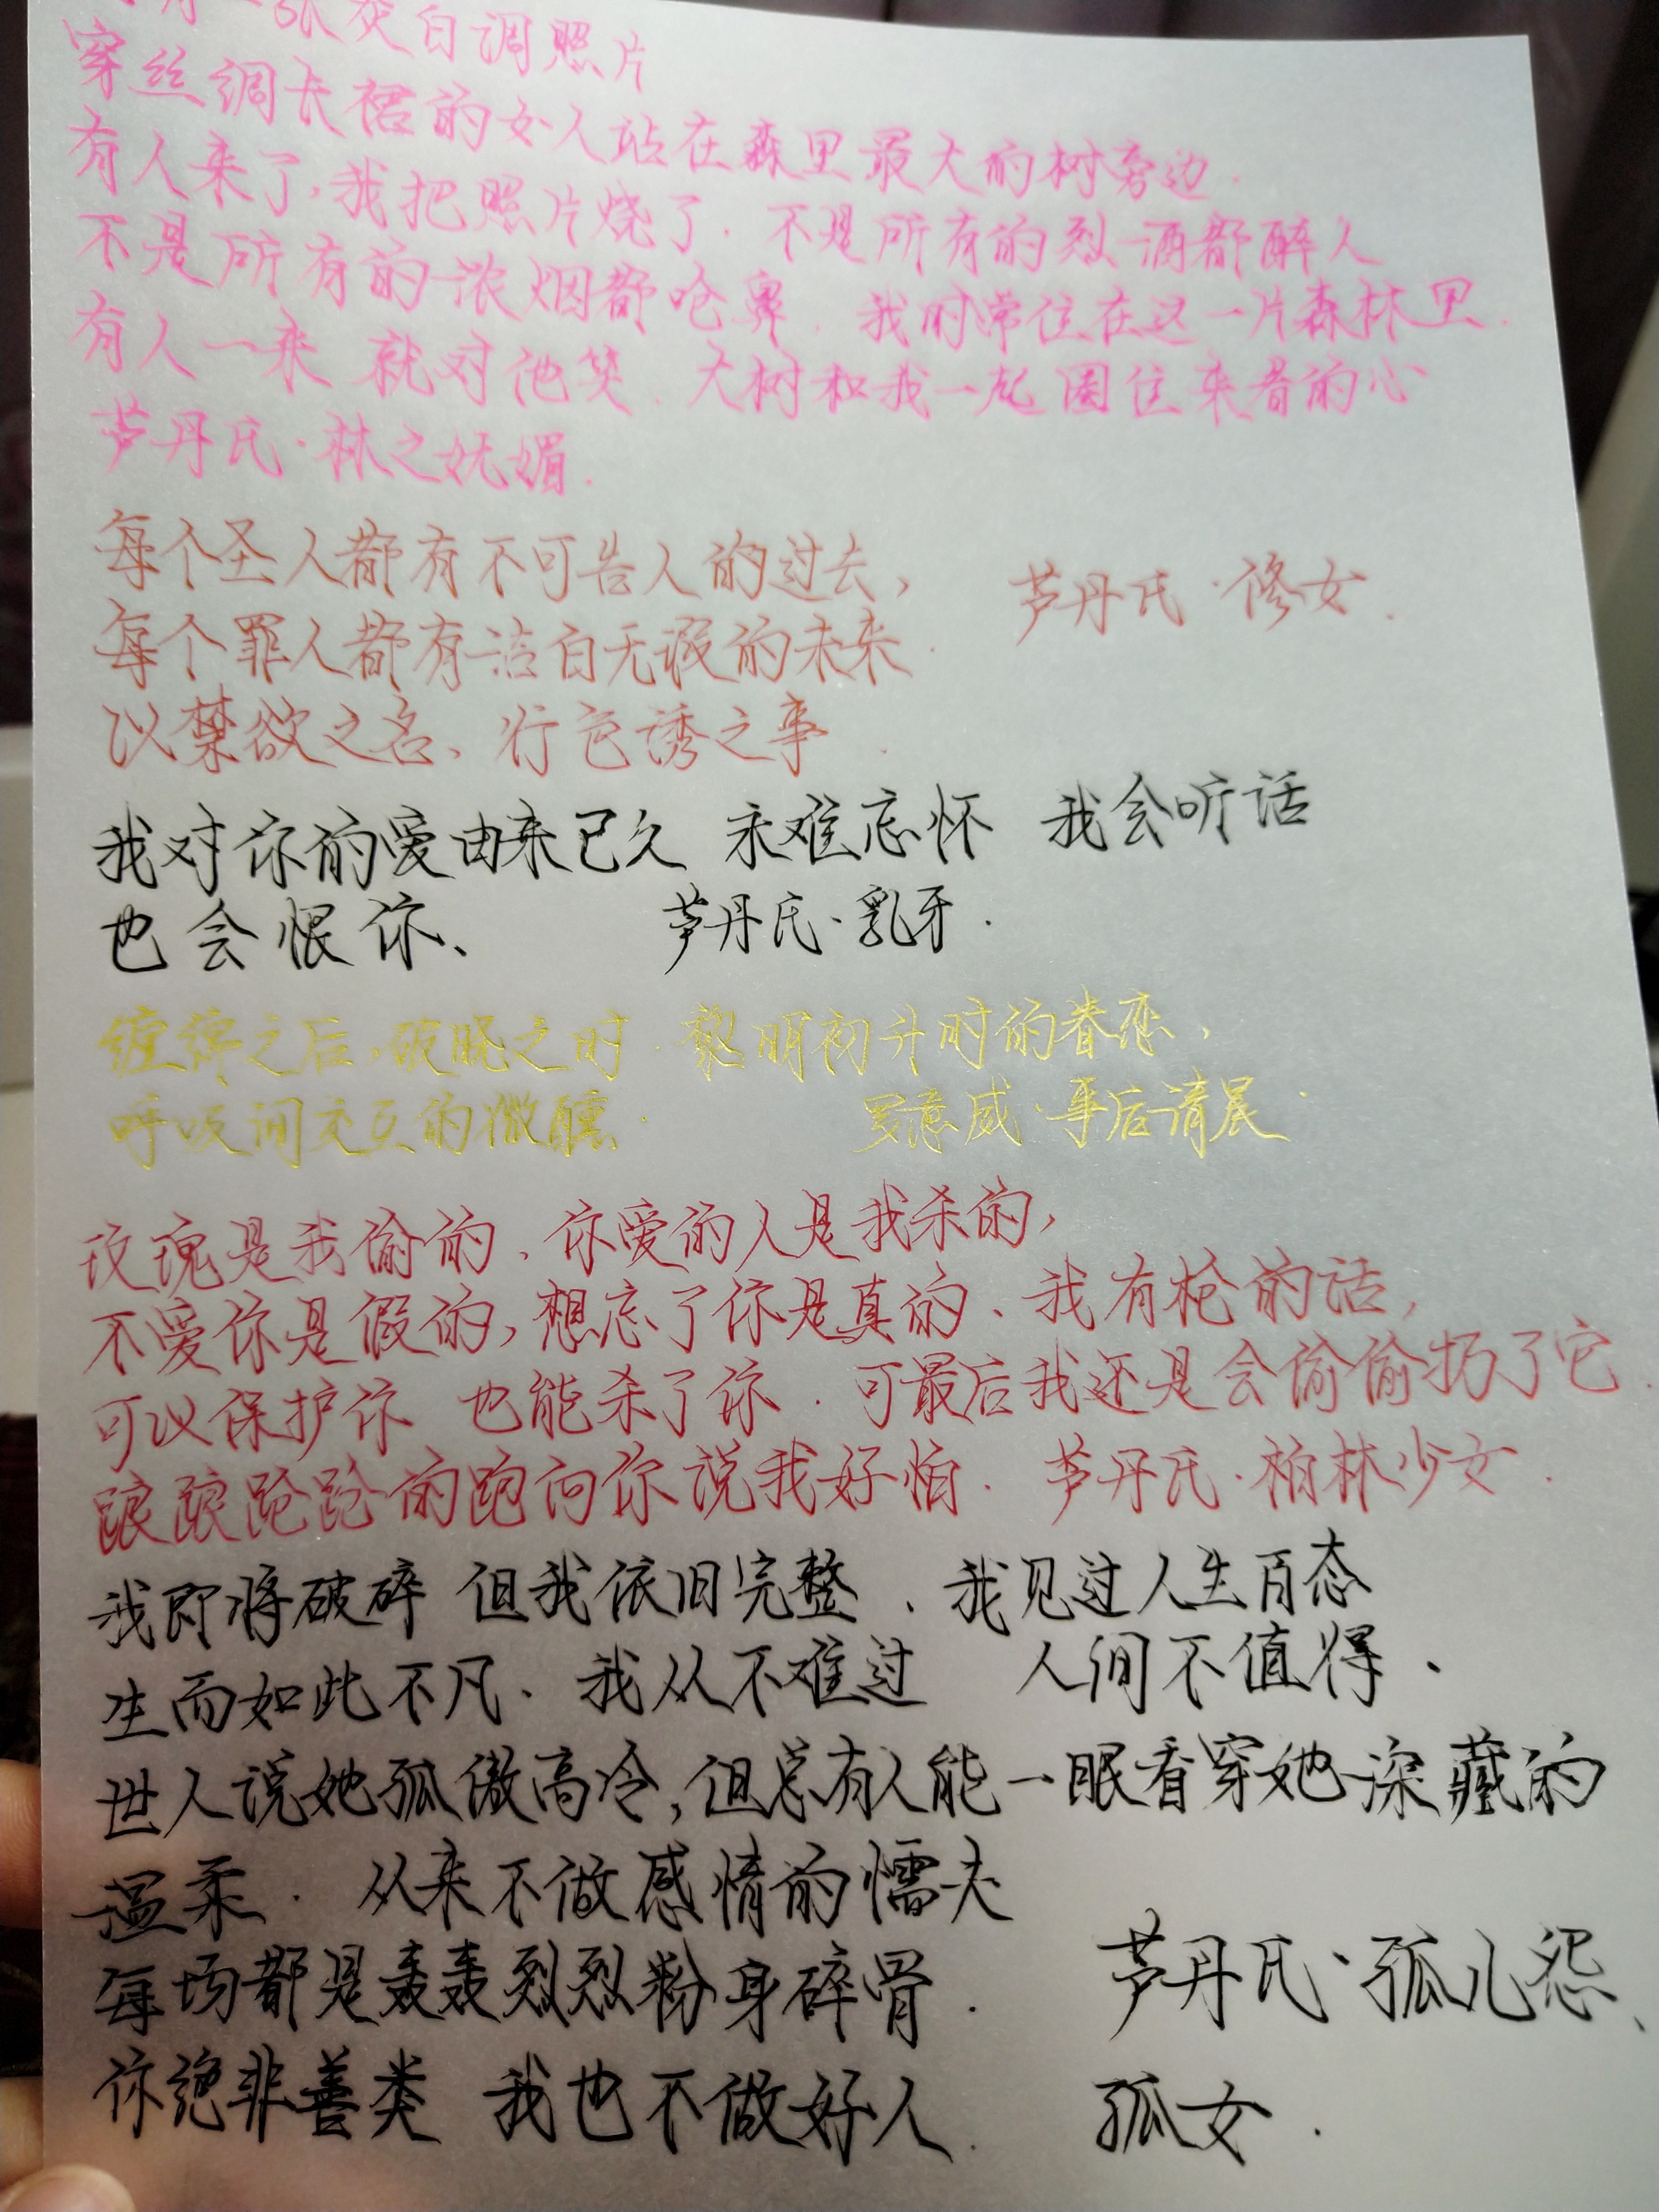 一张灰白调照片
穿丝绸长裙的女人站在森里最大的树旁边.
有人来了,我把照片烧了.不是所有的烈酒都醉人
不是所有的浓烟都呛鼻.我时常住在这一片森林里.
有人一来 就对他笑.大树和我一起圈住来者的心
芦丹氏·林之妩媚.
每个圣人都有不可告人的过去, 芦丹氏·修女.
每个罪人都有洁白无瑕的未来.
以禁欲之名、行色诱之事.
我对你的爱由来已久 未难忘怀 我会听话
也会恨你、 芦丹氏·乳牙.
缠绵之后,破晓之时.黎明初升时的眷恋,
呼吸间交互的微醺. 罗意威·事后清晨.
玫瑰是我偷的、你爱的人是我杀的,
不爱你是假的,想忘了你是真的、我有枪的话,
可以保护你 也能杀了你.可最后我还是会偷偷扔了它.
踉踉跄跄的跑向你说我好怕. 芦丹氏·柏林少女.
我即将破碎 但我依旧完整、我见过人生百态
生而如此不凡、我从不难过 人间不值得、
世人说她孤傲高冷,但总有人能一眼看穿她深藏的
温柔. 从来不做感情的懦夫
每场都是轰轰烈烈粉身碎骨. 芦丹氏·孤儿怨、
你绝非善类 我也不做好人. 孤女.